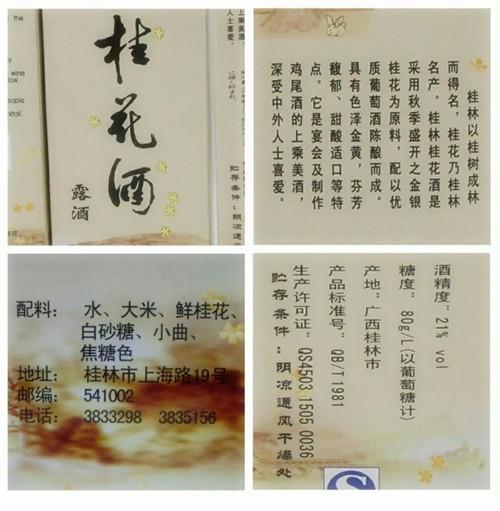 the
wine
people
桂花酒
露酒
上乘美酒，
人士喜爱。
贮存条件：阴凉通风
桂林以桂树成林
而得名，桂花乃桂林
名产。桂林桂花酒是
采用秋季盛开之金银
桂花为原料，配以优
质葡萄酒陈酿而成。
具有色泽金黄，芬芳
馥郁、甜酸适口等特
点。它是宴会及制作
鸡尾酒的上乘美酒，
深受中外人士喜爱。
配料： 水、大米、鲜桂花、
白砂糖、小曲、
焦糖色
地址： 桂林市上海路19号
邮编： 541002
电话： 3833298 3835156
酒精度：21% vol
糖度：80g/L(以葡萄糖计)
产地：广西桂林市
产品标准号：QB/T1981
生产许可证：QS4503 1505 0036
贮存条件：阴凉通风干燥处